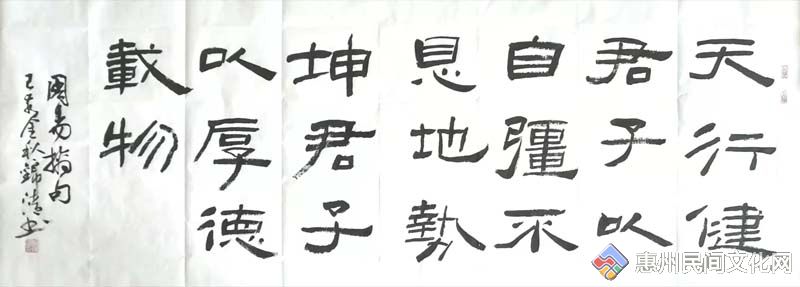 天行健
君子以
自彊不
息地勢
坤君子
以厚德
載物
周易摘句
己亥金秋錦清书
惠州民间文化网